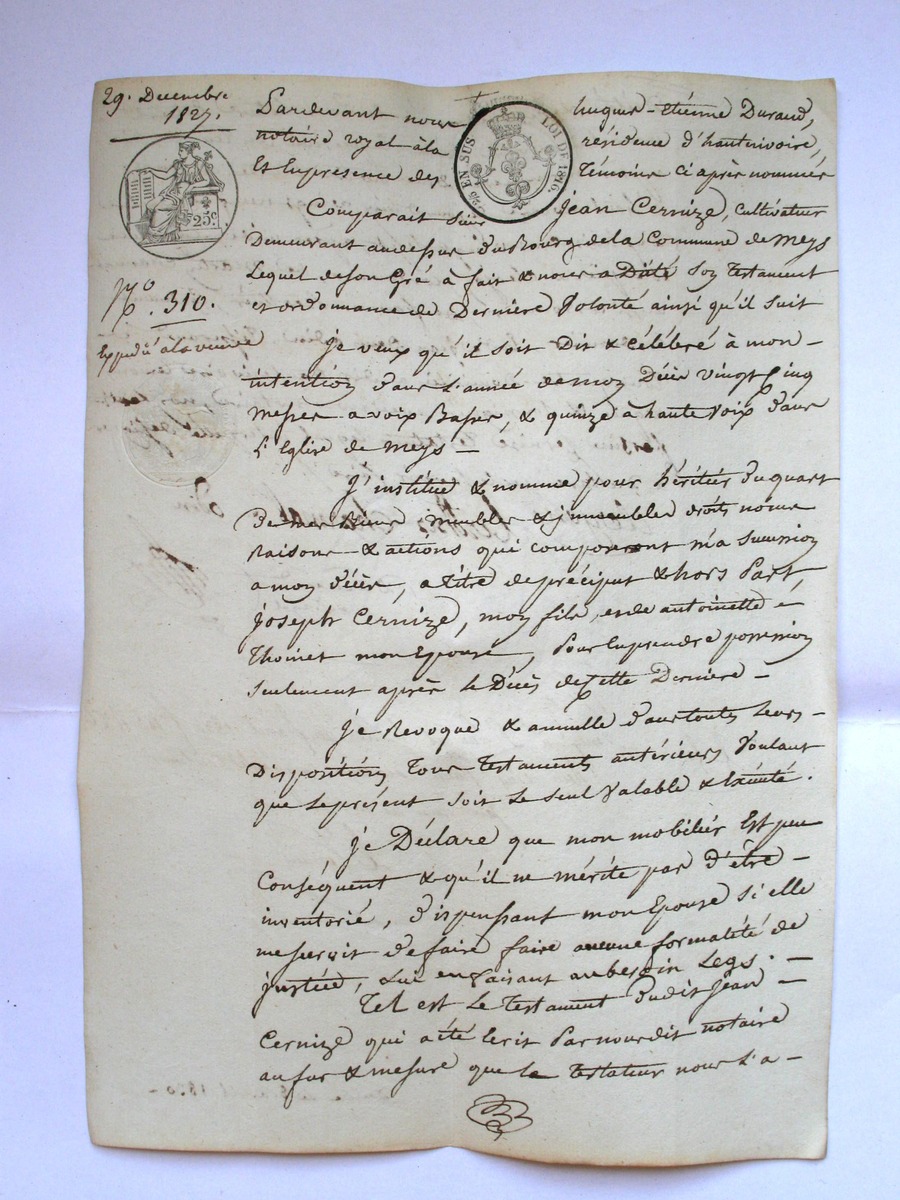 29. Decembre
1827.
Pardevant nous hugues-étienne Durand,
notaire royal à la résidence d'hauterivoire,
Et en presence des Témoins Ci après nommés
25 EN SUS LOI DE 1816.
25c.
Comparait Sieur Jean Cernize, cultivateur
Demeurant au dessus du Bourg de la Commune de Meys
Lequel de son Gré à fait & nous a Dicté Son Testament
et ordonnance de Derniere Volonté ainsi qu'il suit
No. 310.
Expedié à la veuve
Je veux qu'il soit Dit & Célébré à mon
intention dans l'année de mon Décès vingt Cinq
Messes a voix Basse, & quinze à haute voix dans
L'Eglise de Meys —
J'institue & nomme pour héritier du quart
De mes Biens Meubles & immeubles droits noms
Raisons & actions qui composeront ma succession
a mon décès, a titre de préciput & hors Part,
Joseph Cernize, mon fils, et de antoinette
Thoinet mon Epouse, Pour en prendre possession
seulement après le Décès de Cette Derniere —
Je Revoque & annulle dans toutes leurs
Dispositions Tous Testaments antérieurs Voulant
que le présent soit le seul Valable & Exécuté.
Je Déclare que mon mobilier Est peu
Conséquent & qu'il ne mérite pas d'être
inventorié, dispensant mon Epouse si elle
me survit de faire faire aucune formalité de
justice, Lui en faisant au besoin Legs. —
Tel est le Testament dudit Jean
Cernize qui a été Ecrit Par nous dit notaire
au fur & mesure que le Testateur nous l'a —